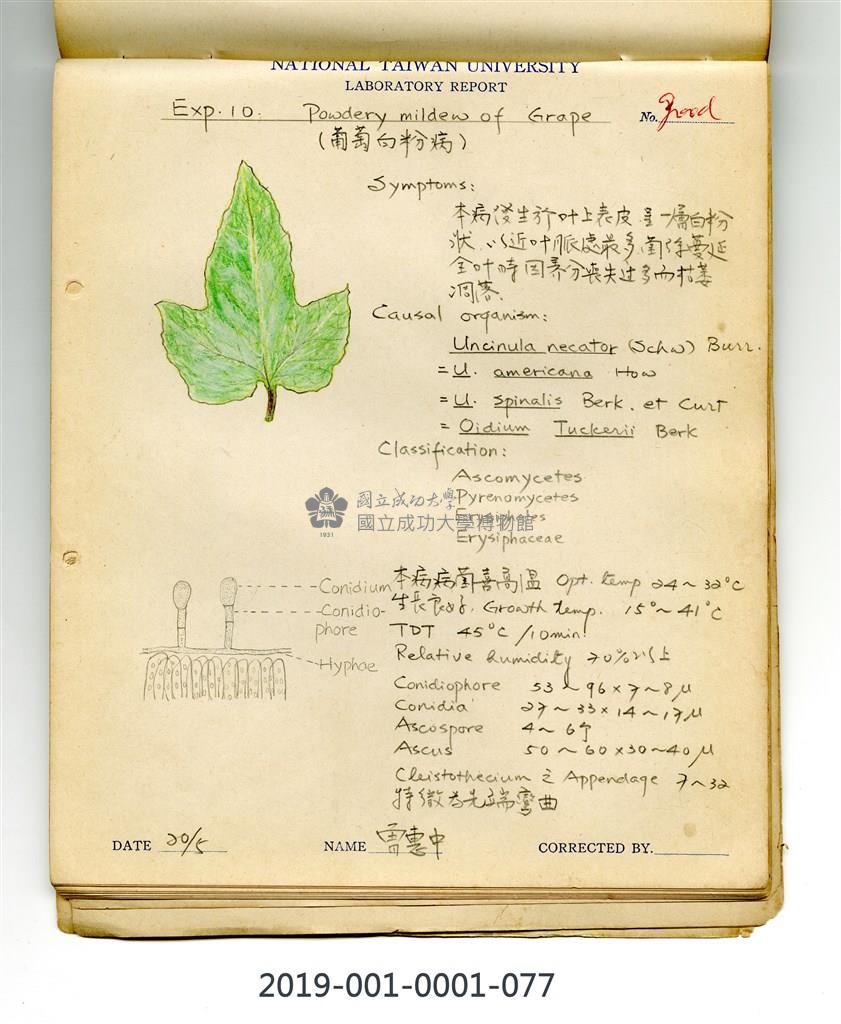 NATIONAL TAIWAN UNIVERSITY
LABORATORY REPORT
Exp. 10. Powdery mildew of Grape No. Good
(葡萄白粉病)
Symptoms:
本病發生於叶上表皮呈一層白粉
狀,以近叶脈處最多,菌絲蔓延
全叶時因养分丧失过多而枯萎
凋落.
Causal organism:
Uncinula necator (Schw) Burr.
= U. americana How
= U. spinalis Berk. et Curt
= Oidium Tuckerii Berk
Classification:
Ascomycetes
Pyrenomycetes
Erysiphales
Erysiphaceae
國立成功大學
國立成功大學博物館
1931
Conidium
Conidio-
phore
Hyphae
本病病菌喜高温 Opt. temp 24~32°C
生長良好. Growth temp. 15°~41°C
TDT 45°C /10min.
Relative humidity 70%以上
Conidiophore 53~96×7~8μ
Conidia 27~33×14~17μ
Ascospore 4~6个
Ascus 50~60×30~40μ
Cleistothecium 之 Appendage 7~32
特徵为先端彎曲
DATE 20/5 NAME 雷惠中 CORRECTED BY.
2019-001-0001-077